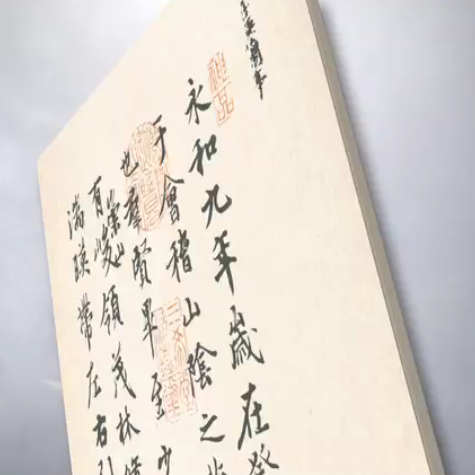 永和九年歲在癸
于會稽山陰之
也羣賢畢至少
有崇山峻領茂林脩
湍暎帶左右引